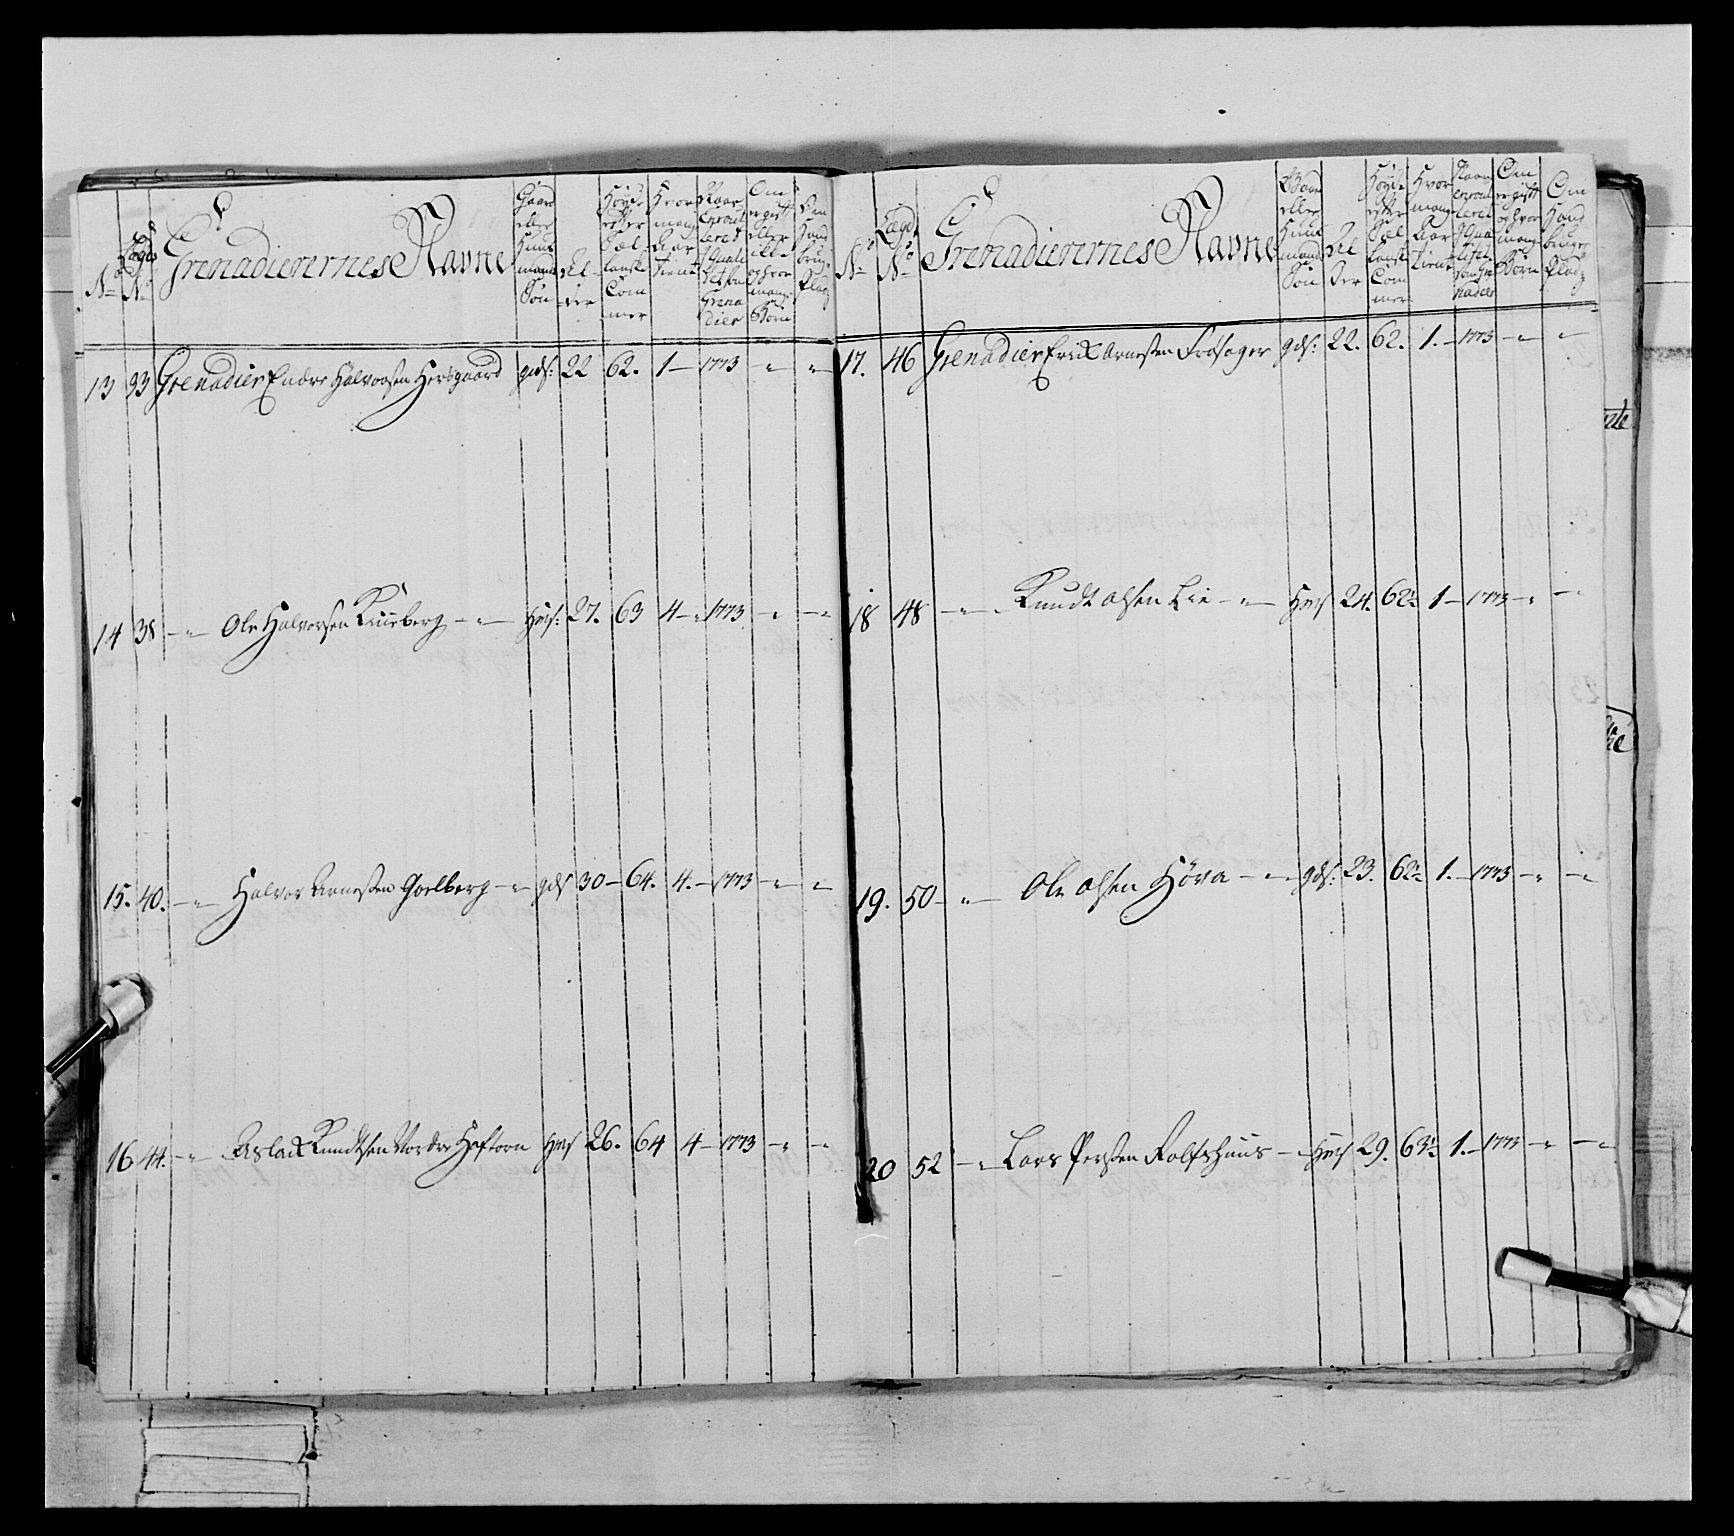 No
Lægds No
Grenadierernes Navne
Gaard eller Huusmands Søn
Alder
Høyde efter Sælandske Commer
Hvor mange Aar tient
Naar Enrouleret i Qualitet som Grenadier
Om er gift eller ikke og hvor mange Børn
Om Haandbruger Plads
13 33 Grenadier Endre Halvorsen Hersgaard gds: 22 62. 1 — 1773 — " — "
14 38 — " — Ole Halvorsen — " — Hus: 27. 63 4 — 1773 — " — "
15. 40. — " — Halvor Arnesen Goelberg — " gds 30 — 64. 4. — 1773 — " — "
16 44. — " — Aslack Knudtsen Nordre Heftorn Hus 26. 64 4 — 1773 — " — "
No
Lægds No
Grenadierernes Navne
Gaard eller Huusmands Søn
Alder
Høyde efter Sælandske Commer
Hvor mange Aar tient
Naar Enrouleret i Qualitet som Grenadier
Om er gift og hvor mange Børn
Om Haandbruger Plads
17. 46 Grenadier Erick Arnesen Frøsager gds: 22. 62. 1. — 1773 — " — "
18 48 — " — Knudt Olsen Lie — " — Hus 24. 62½ 1 — 1773 — " — "
19. 50 — " — Ole Olsen Høva — " — gds: 23. 62½ 1. — 1773 — " — "
20 52 — " — Lars Persen Rolfshuus — Hus 29. 63½ 1. — 1773 — " — "